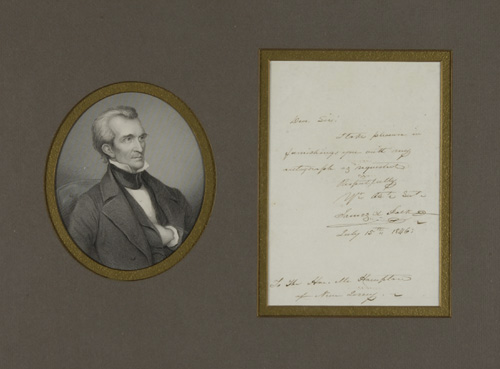 Dear Sir:
I take pleasure in
furnishing you with my
autograph as requested
Respectfully
James K. Polk
July 15th 1846.
To The Hon. Mr Hampton
of New Jersey